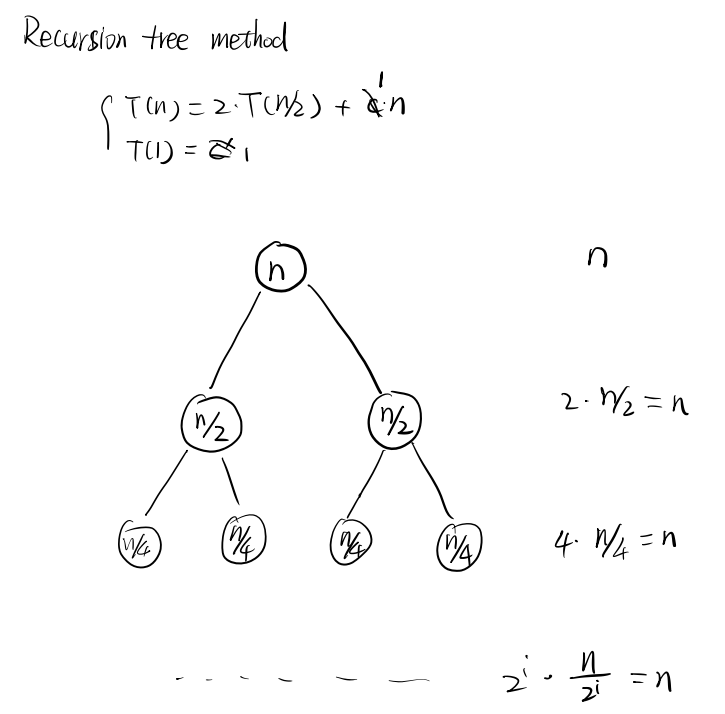 Recursion tree method
T(n) = 2·T(n/2) + 1·n
T(1) = 1
n
n
n/2
n/2
2 · n/2 = n
n/4
n/4
n/4
n/4
4 · n/4 = n
2^i · n/2^i = n